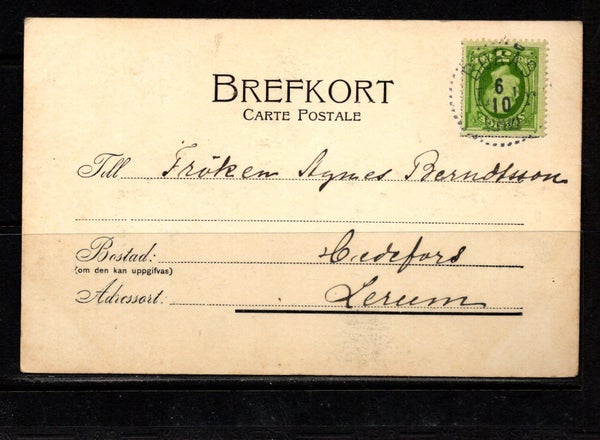 BREFKORT
CARTE POSTALE
6
10
Till Fröken Agnes Berndtsson
Bostad: Cedefors
(om den kan uppgifvas)
Adressort. Lerum